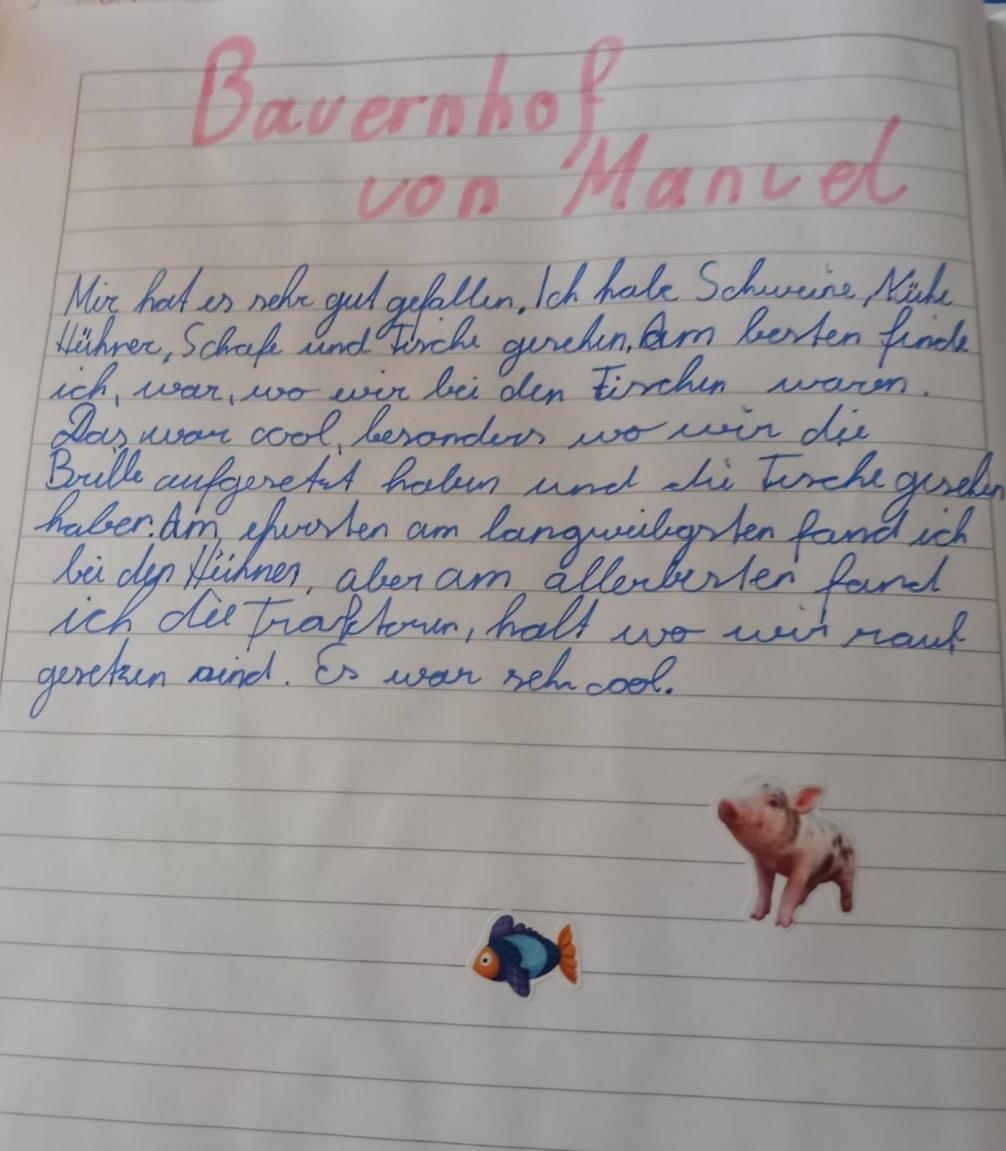 Bauernhof
von Manuel
Mir hat es sehr gut gefallen. Ich habe Schweine, Kühe
Hühner, Schafe und Fische gesehen. Am besten finde
ich, war, wo wir bei den Fischen waren.
Das war cool, besonders wo wir die
Brille aufgesetzt haben und die Fische gesehen
haben. Am am langweiligsten fand ich
bei den Hühner, aber am allerbesten fand
ich die Traktoren, halt wo wir rauf
gesetzen sind. Es war sehr cool.